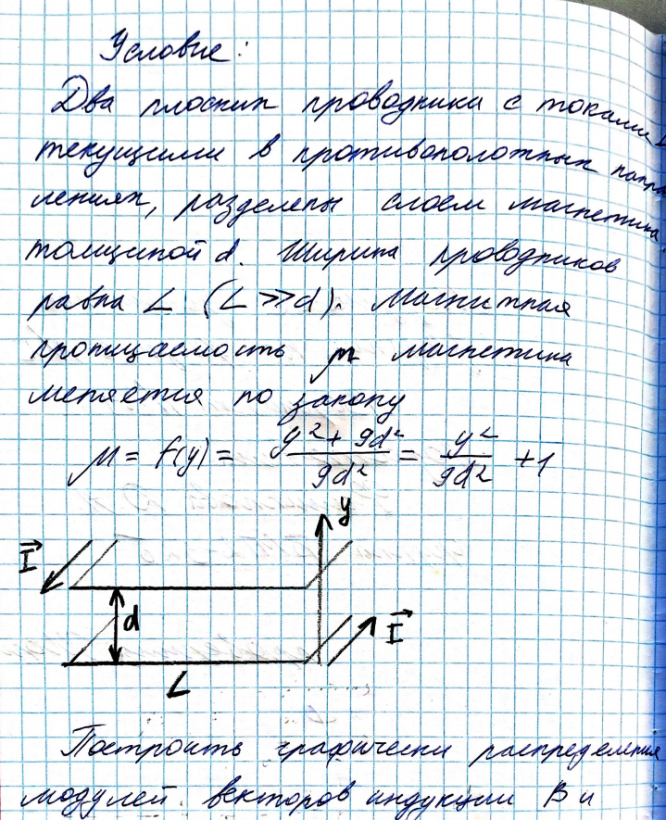 Условие:
Два плоских проводника с токами I
текущими в противоположных напра
лениях, разделены слоем магнетика,
толщиной d. Ширина проводников
равна L (L >> d). Магнитная
проницаемость μ магнетика
меняется по закону
μ = f(y) = \frac{y² + 9d²}{9d²} = \frac{y²}{9d²} + 1
y
I⃗
d
I⃗
L
Построить графически распределения
модулей векторов индукции B и